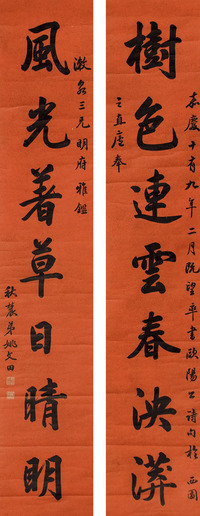 樹色連雲春泱漭
嘉慶十有九年二月既望奉書歐陽公詩句於西園
之直廬奉
風光著草日晴明
三兄明府雅鑑
秋農弟姚文田